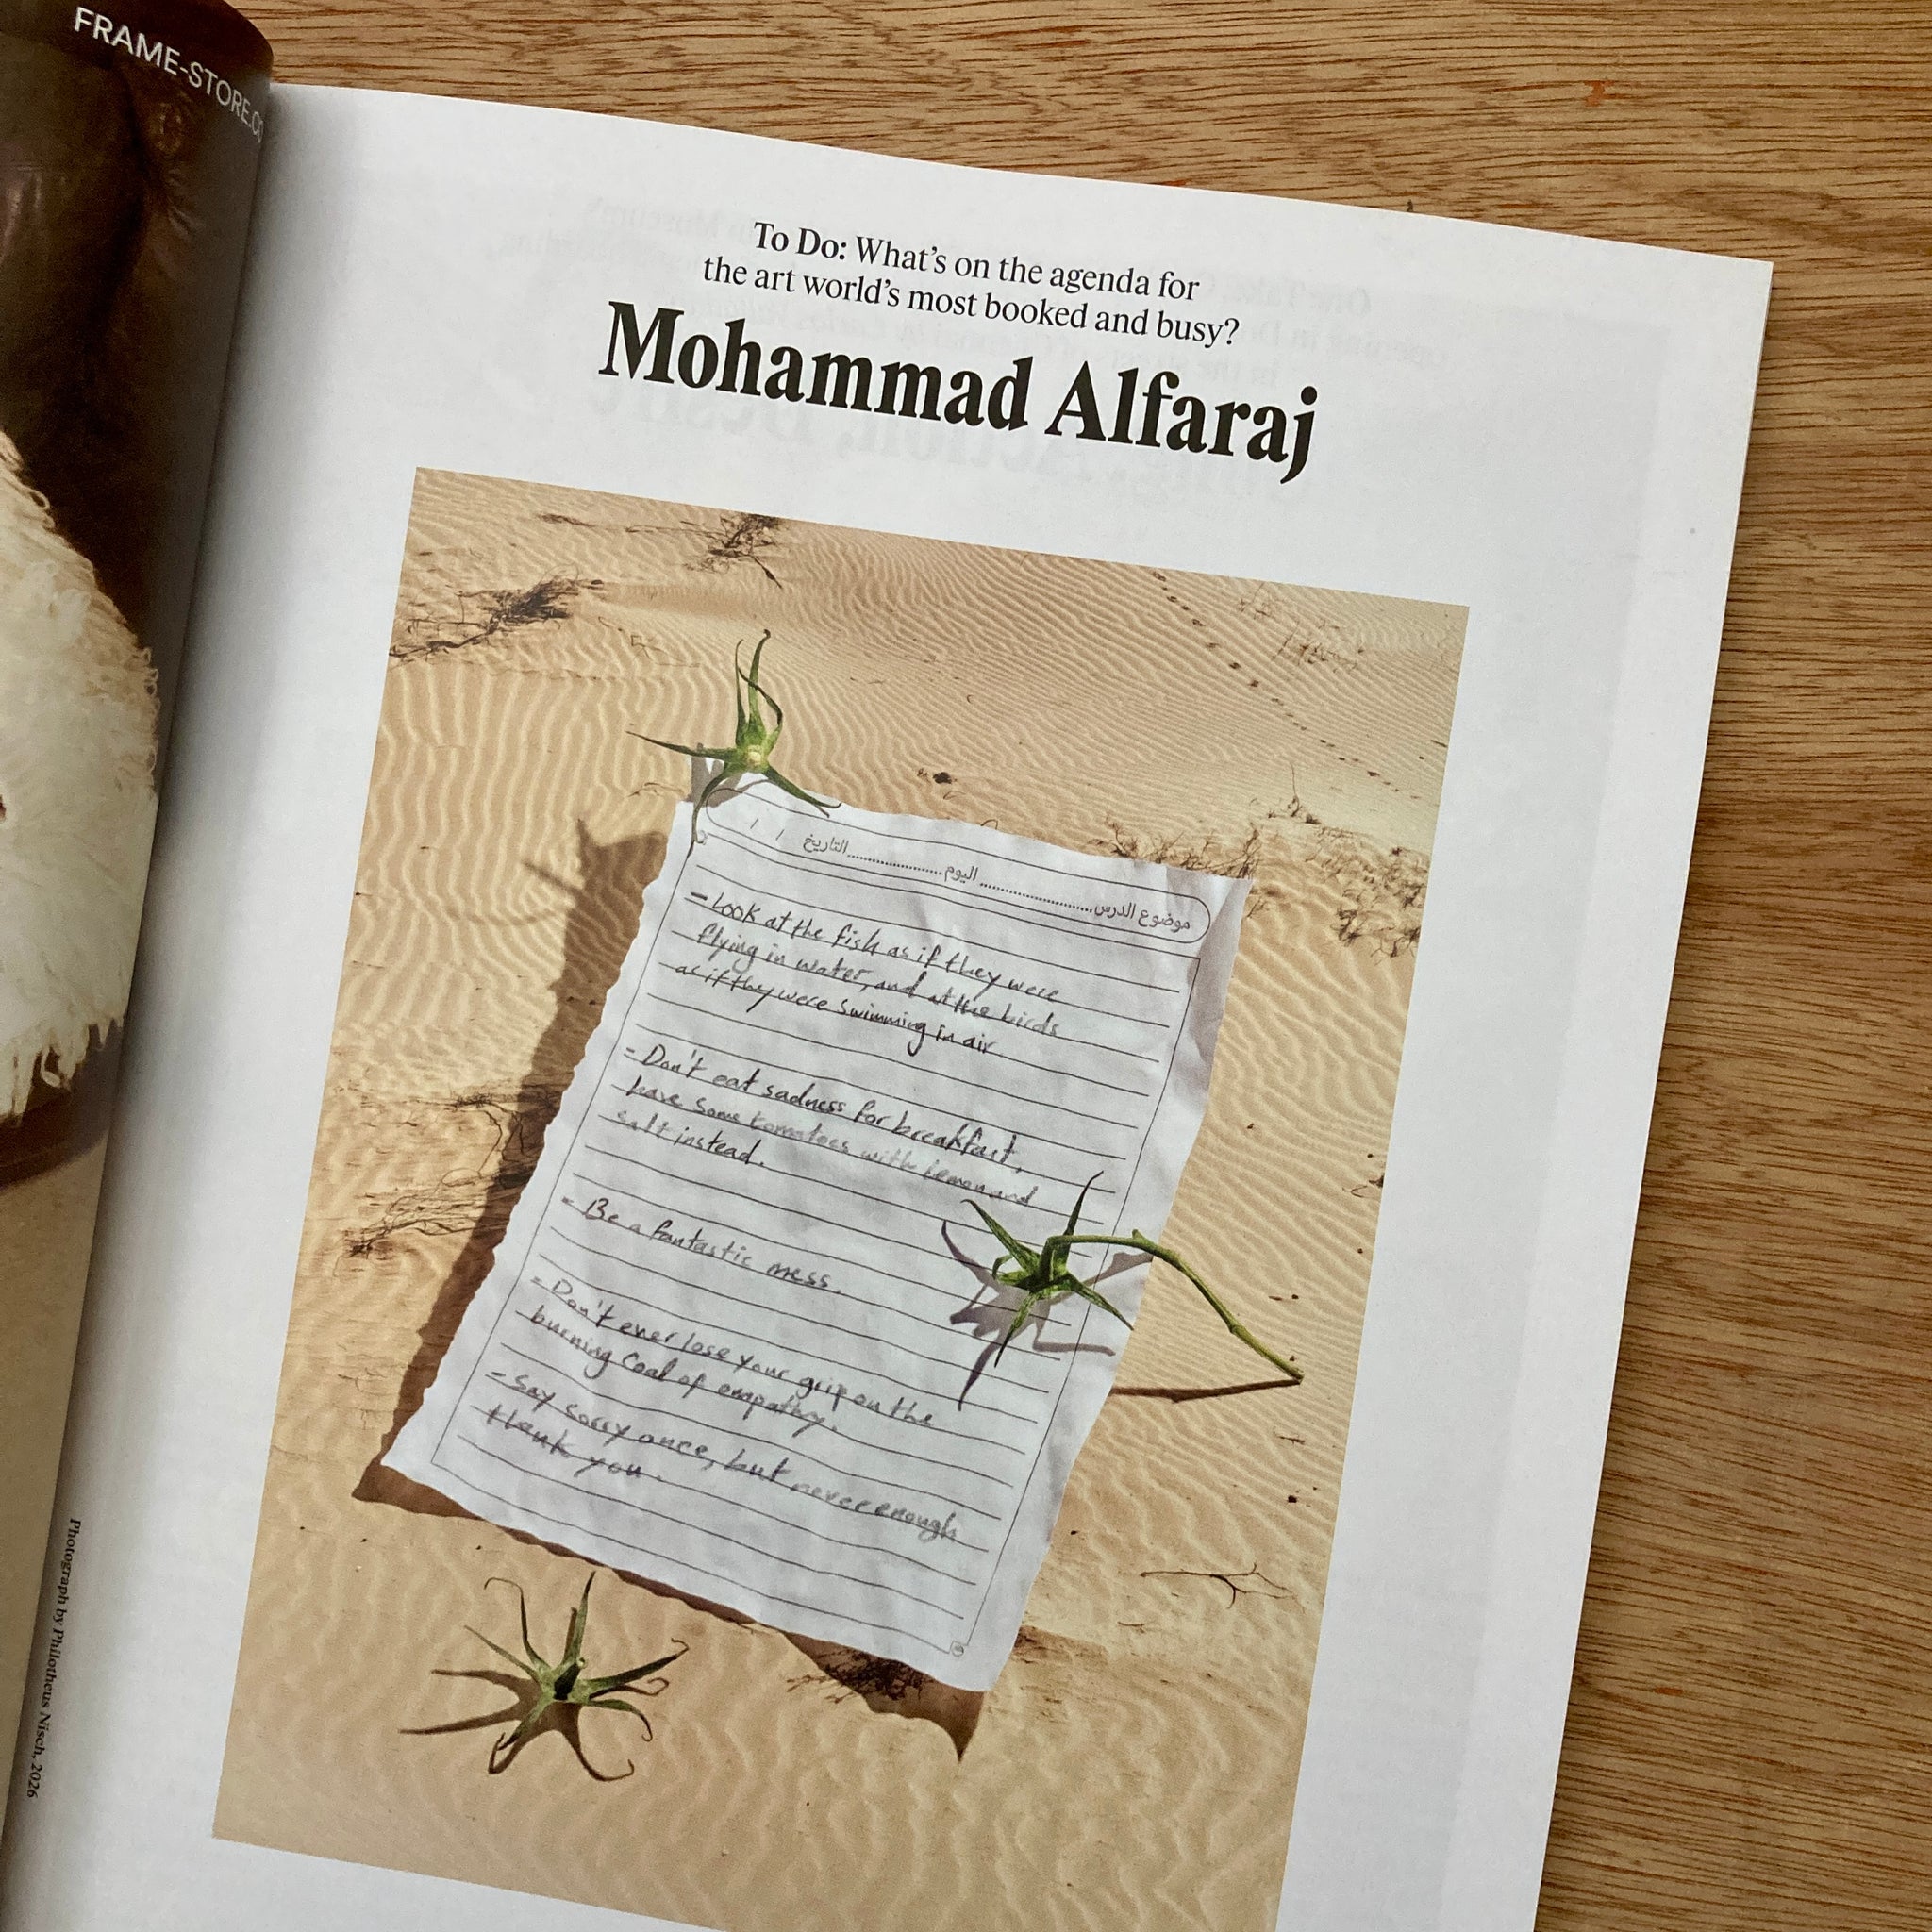 FRAME-STORE.C
To Do: What's on the agenda for
the art world's most booked and busy?
Mohammad Alfaraj
موضوع الدرس.................... اليوم.................... التاريخ / /
- Look at the fish as if they were
flying in water, and at the birds
as if they were swimming in air
- Don't eat sadness for breakfast,
have some tomatoes with lemon and
salt instead.
- Be a fantastic mess.
- Don't ever lose your grip on the
burning coal of empathy.
- Say sorry once, but never enough
thank you.
Photograph by Philotheus Nisch, 2026